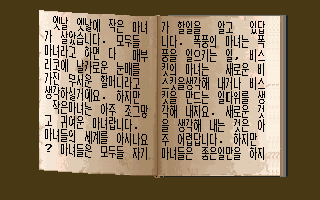 옛날 옛날에 작은 마녀
가 살았습니다. 모두들
마녀라고 하면 다 매부
리코에 날카로운 눈매를
가진 무서운 할머니라고
생각하실거예요. 하지만
작은마녀는 아주 조그맣
고 귀여운 마녀랍니다.
마녀들의 세계를 아시나요
? 마녀들은 모두들 자기
가 할일을 알고 있답
니다. 폭풍의 마녀는 폭
풍을 일으키는 일, 비스
킷의 마녀는 새로운 비
스킷을생각해 내거나 비스
킷을 만드는 일따위를 생
각해 내지요. 새로운 일
을 생각해 내는 것은 아
주 어렵답니다. 하지만
마녀들은 좋은일만을 하지